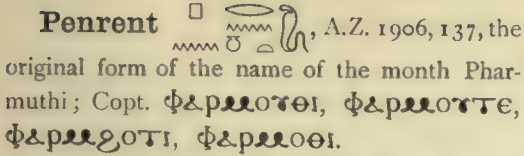 Penrent 𓊪𓈖𓂋𓈖𓏌𓏏𓆗, A.Z. 1906, 137, the
original form of the name of the month Phar-
muthi; Copt. ⲫⲁⲣⲙⲟⲩⲑⲓ, ⲫⲁⲣⲙⲟⲩⲧⲉ,
ⲫⲁⲣⲙϩⲟⲧⲓ, ⲫⲁⲣⲙⲟⲑⲓ.